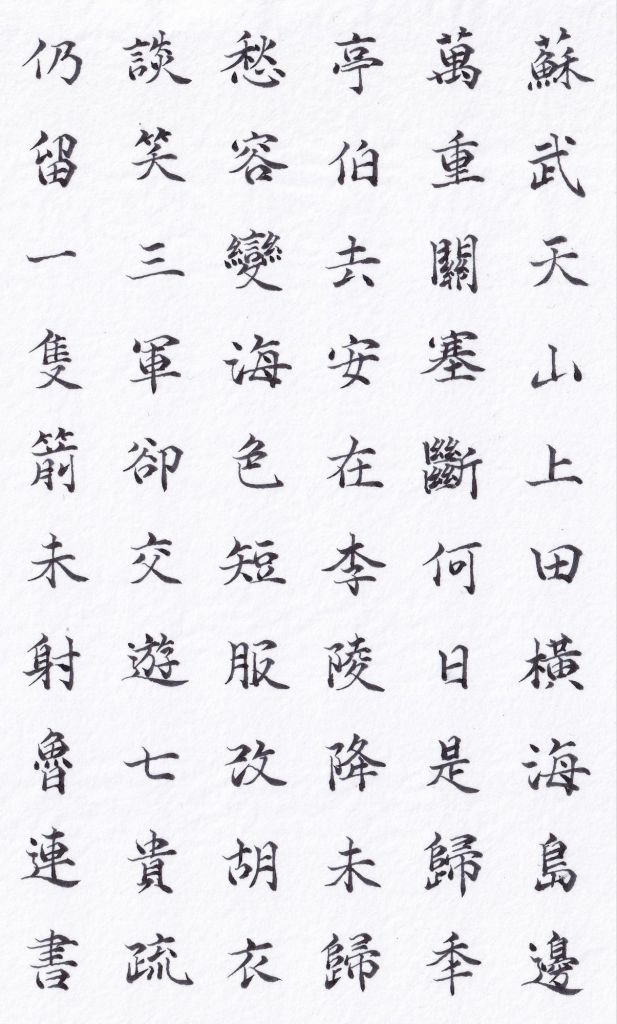 蘇武天山上田橫海島邊
萬重關塞斷何日是歸秊
亭伯去安在李陵降未歸
愁容變海色短服改胡衣
談笑三軍卻交遊七貴疏
仍留一隻箭未射魯連書